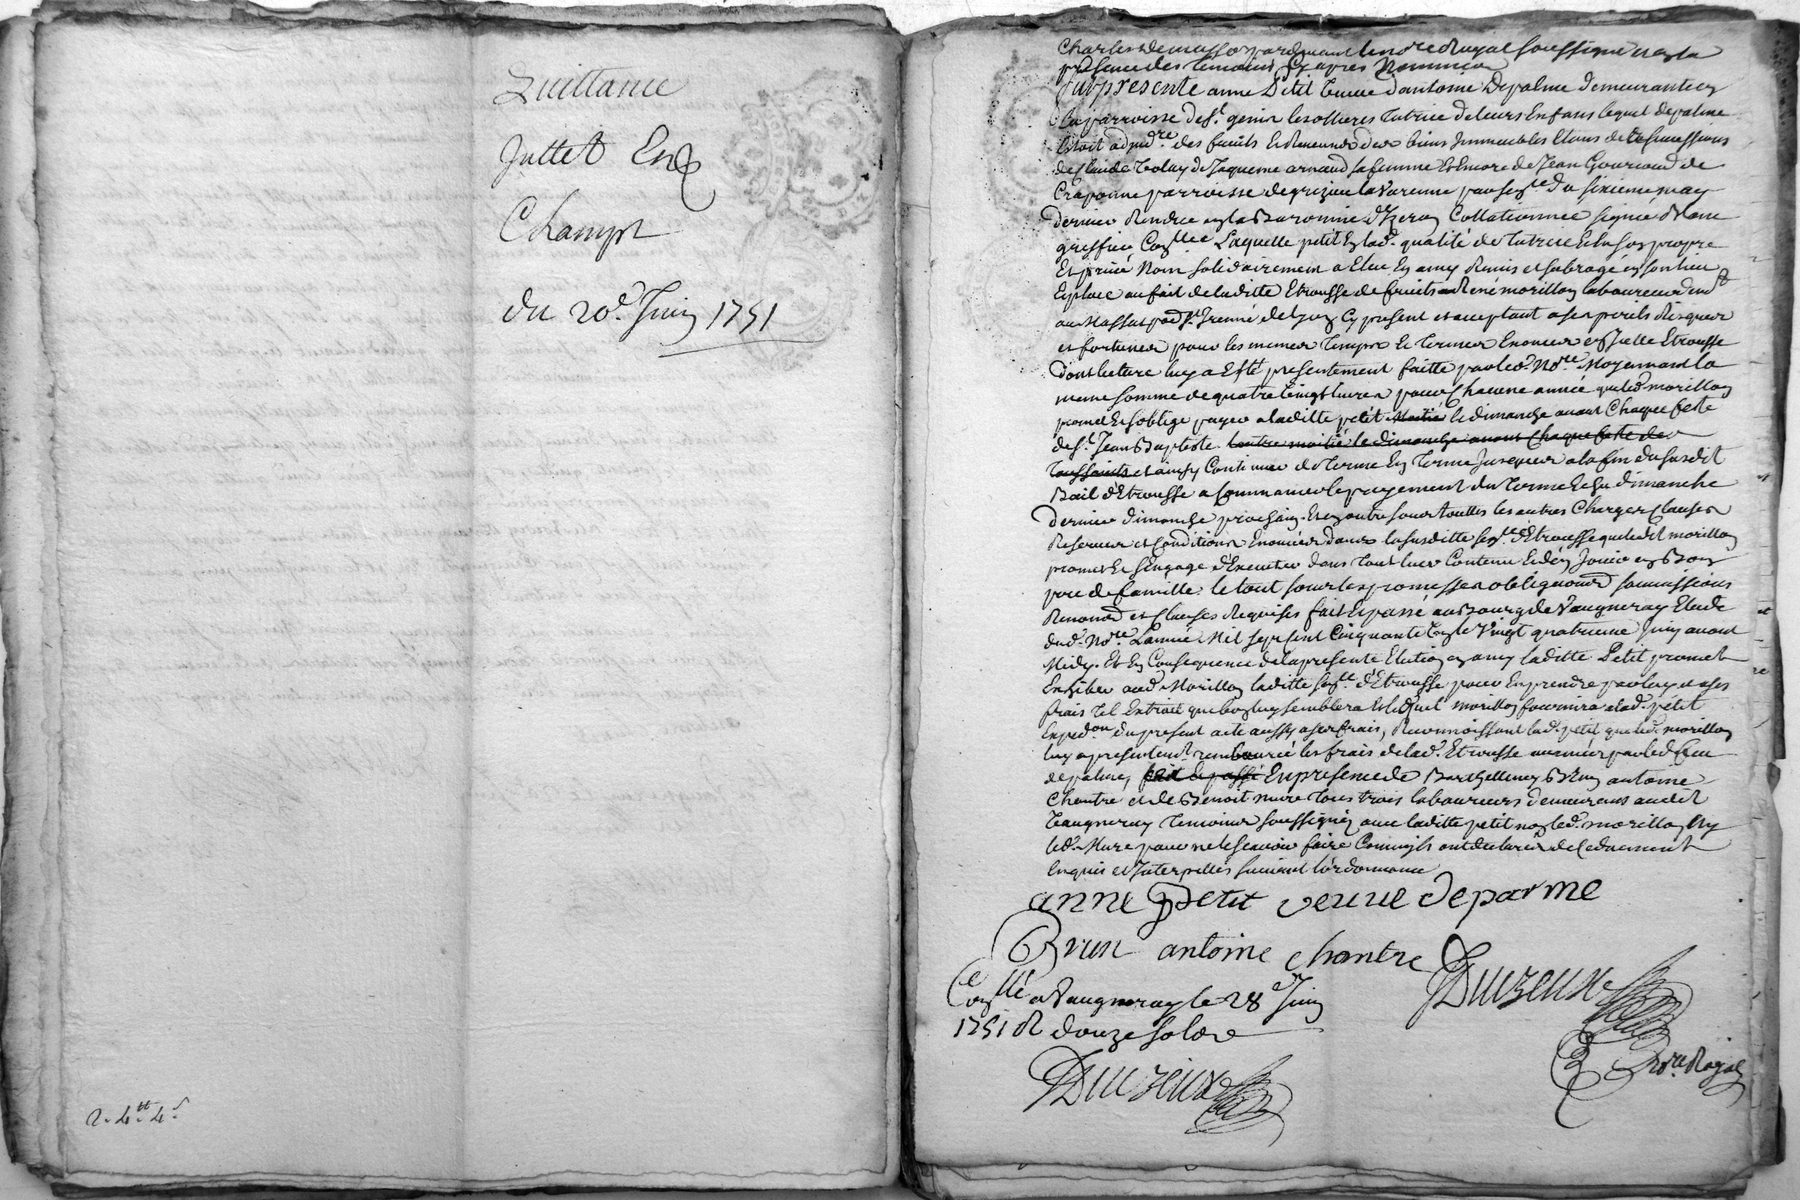 Quittance
Juttet En
Champt
du 20e. Juin 1751
R. 4tt. 4s.
pardevant le nore Royal soussigné
presence des temoins cy apres nommés
fut presente anne Petit veuve d'antoine Depalme demeurante en
la parroisse de st. genis les ollieres tutrice de leurs enfans lequel depalme
Etoit adjudre. des fruits et Revenus des biens Immeubles Etans de la successions
de Claude de Jaqueme arnaud sa femme et Encore de Jean Gouriaud de
Craponne parroisse de grizieu la Varenne par sentce du sixieme may
dernier Rendue en la Baronnie d'Izeron Collationnée signée
greffier Conllee Laquelle petit En lad. qualité de tutrice et En son propre
Et privé Nom solidairement a Elue En amy Remis et subrogé en son lieu
Et place au fait de laditte Etrousse de fruits René morillon laboureur demt
au Massut pad. st Irenné de Lyon Cy present et acceptant a ses perils Risques
et fortunes pour les memes temps et termes Enoncés en Icelle Etrousse
dont lecture luy a Esté presentement faitte par led. Nore. Moyennant la
meme somme de quatre vingt livres pour Chacune année que led morillon
promet Et soblige payer a laditte petit moitié le dimanche avant Chaque feste
de st. Jean Baptiste lautre moitié le dimanche avant Chaque feste de
toussaints et ainsy Continuer de terme En terme Jusques a la fin du susdit
Bail d'Etrousse a Commancer le payement du terme Echu dimanche
dernier dimanche prochain. Et en outre sous touttes les autres Charges Clauses
Reserves et Conditions Enoncées dans la susditte sentce d'Etrousse que ledit morillon
promet Et sengage d'Executer dans tout leur Contenu Et d'en Jouir en Bon
pere de famille. le tout sous les promesses obligations soumissions
Renonons et Clauses Requises fait Et passé au Bourg de Vaugneray Etude
dud. Nore Lannée Mil sept cent Cinquante Un le Vingt quatrieme Juin avant
Midy. Et En Consequence de la presente Election en amy laditte Petit promet
Exhiber aud. Morillon laditte sentce. d'Etrousse pour En prendre par luy a ses
frais tel Extrait que bon luy semblera Et lequel morillon fournira a lad. petit
Expedon du present acte aussy a ses frais, Reconnoissant lad. petit que led. morillon
luy a presentemt. remboursé les frais de lad. Etrousse avancés par led feu
depalme, fait Et passé En presence de Barthellemy Brun, antoine
Chantre et de Benoit mure tous trois laboureurs demeurans audit
Vaugneray temoins soussignés avec laditte petit non led. morillon Ny
led. Mure pour ne le scavoir faire Comme ils ont declarés de ce duement
Enquis et Interpellés suivant lordonnance
anne petit veuve deparme
Brun antoine chantre
Duzeux
Conllé a Vaugneray le 28e Juin
1751 R douze sols
nore Royal
Duzeux